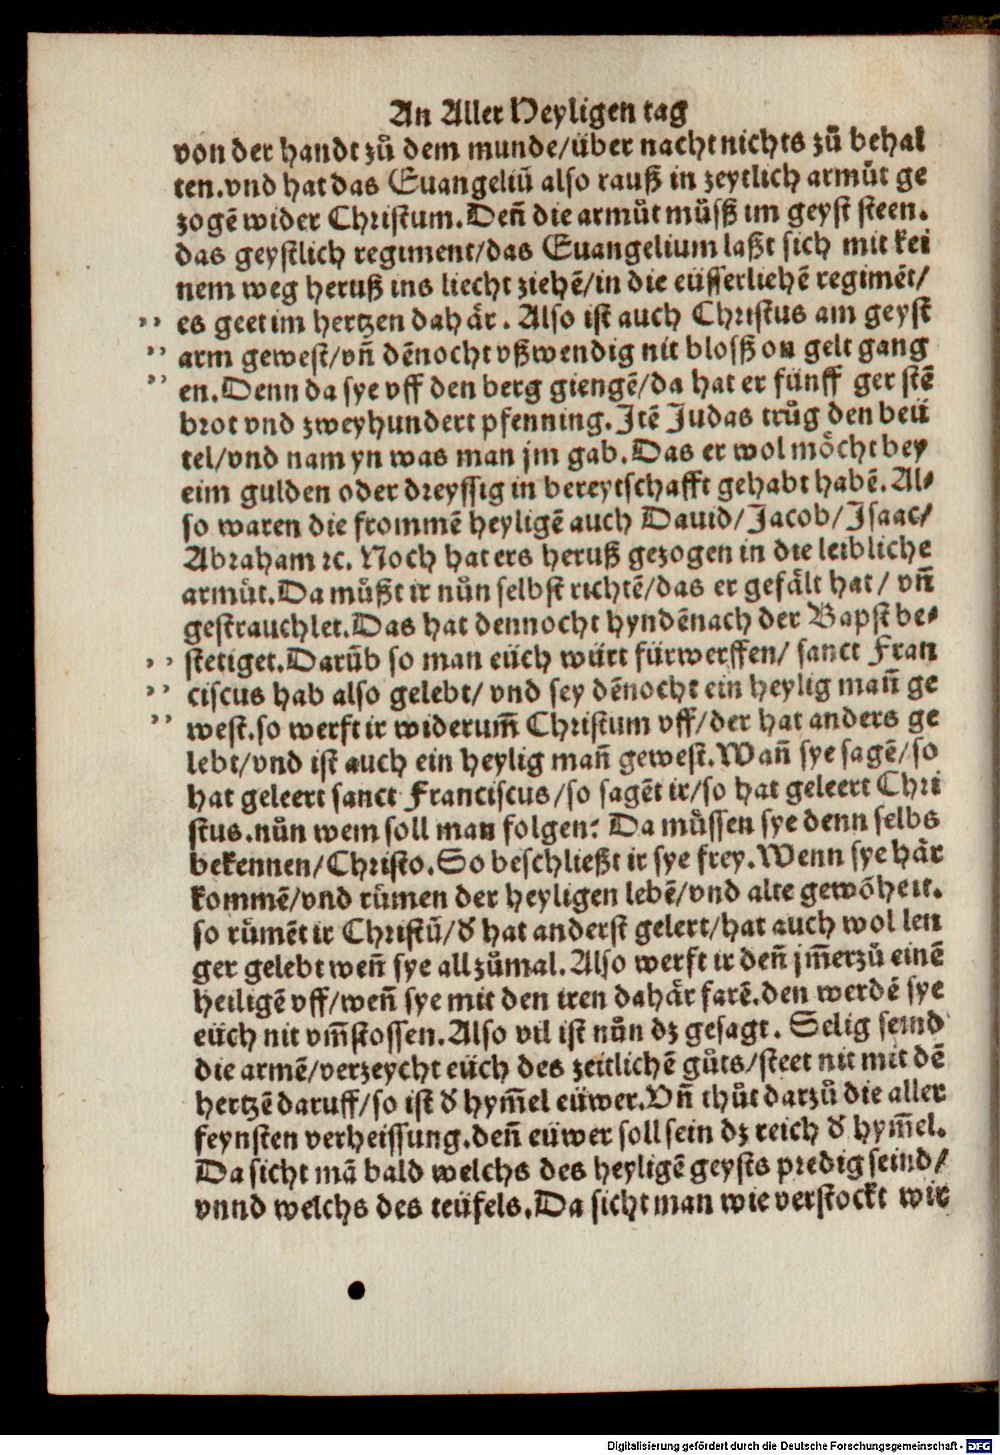 An Aller Heyligen tag
von der handt zů dem munde/über nacht nichts zů behal
ten.vnd hat das Euangeliū also rauß in zeytlich armůt ge
zogē wider Christum.Deñ die armůt můsß im geyst steen.
das geystlich regiment/das Euangelium laßt sich mit kei
nem weg heruß ins liecht ziehē/in die eüsserliehē regimēt/
es geet im hertzen dahär. Also ist auch Christus am geyst
arm gewest/vñ dēnocht vßwendig nit blosß on gelt gang
en.Denn da sye vff den berg giengē/da hat er fünff ger stē
brot vnd zweyhundert pfenning.Itē Judas trůg den beü
tel/vnd nam yn was man jm gab.Das er wol möcht bey
eim gulden oder dreyssig in bereytschafft gehabt habē.Al⸗
so waren die frommē heyligē auch Dauid/Jacob/Isaac/
Abraham ꝛc. Noch hat ers heruß gezogen in die leibliche
armůt.Da müßt ir nůn selbst richtē/das er gefält hat/ vñ
gestrauchlet.Das hat dennocht hyndēnach der Bapst be⸗
stetiget.Darūb so man eüch würt fürwerffen/ sanct Fran
ciscus hab also gelebt/ vnd sey dēnocht ein heylig mañ ge
west.so werft ir widerum̄ Christum vff/der hat anders ge
lebt/vnd ist auch ein heylig mañ gewest.Wañ sye sagē/so
hat geleert sanct Franciscus/so sagēt ir/so hat geleert Chri
stus.nůn wem soll man folgen? Da müssen sye denn selbs
bekennen/Christo.So beschließt ir sye frey.Wenn sye här
kommē/vnd rümen der heyligen lebē/vnd alte gewōheit.
so rümēt ir Christū/d̕ hat anderst gelert/hat auch wol len
ger gelebt weñ sye all zůmal.Also werft ir deñ jm̄erzů einē
heiligē vff/weñ sye mit den iren dahär farē.den werdē sye
eüch nit vm̄stossen.Also vil ist nůn dz gesagt. Selig seind
die armē/verzeycht eüch des zeitlichē gůts/steet nit mit dē
hertzē daruff/so ist d̕ hym̄el eüwer.Vñ thůt darzů die aller
feynsten verheissung.deñ eüwer soll sein dz reich d̕ hym̄el.
Da sicht mā bald welchs des heyligē geysts predig seind/
vnnd welchs des teüfels.Da sicht man wie verstockt wir
Digitalisierung gefördert durch die Deutsche Forschungsgemeinschaft - DFG